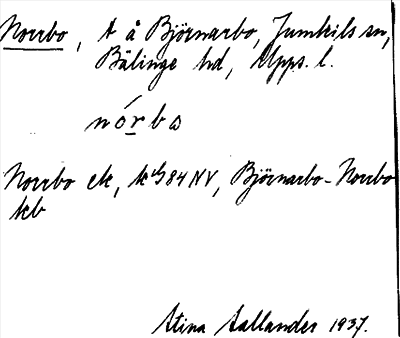 Norrbo, t å Björnarbo, Jumkils sn,
Bälinge hd, Upps. l.
nórba
Norrbo ek, Björnarbo-Norrbo
Stina Sallander 1937.